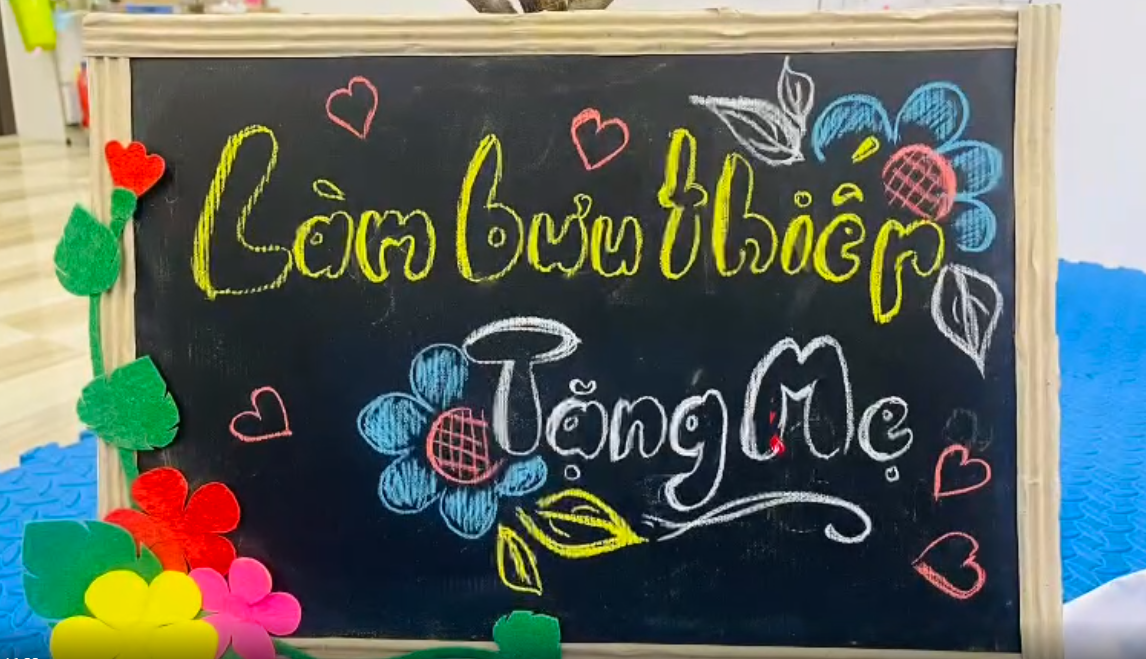 Làm bưu thiếp
Tặng Mẹ